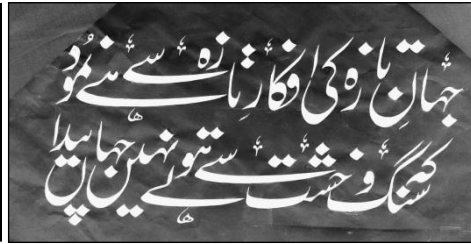 جہانِ تازہ کی افکارِ تازہ سے ہے نمود
کہ سنگ و خشت سے ہوتے نہیں جہاں پیدا